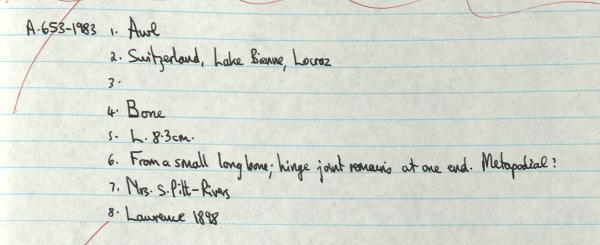 A.653-1983 1. Awl
2. Switzerland, Lake Bienne, Locroz
3.
4. Bone
5. L. 8.3cm.
6. From a small long bone; hinge joint remains at one end. Metapodial?
7. Mrs. S. Pitt-Rivers
8. Lawrence 1898